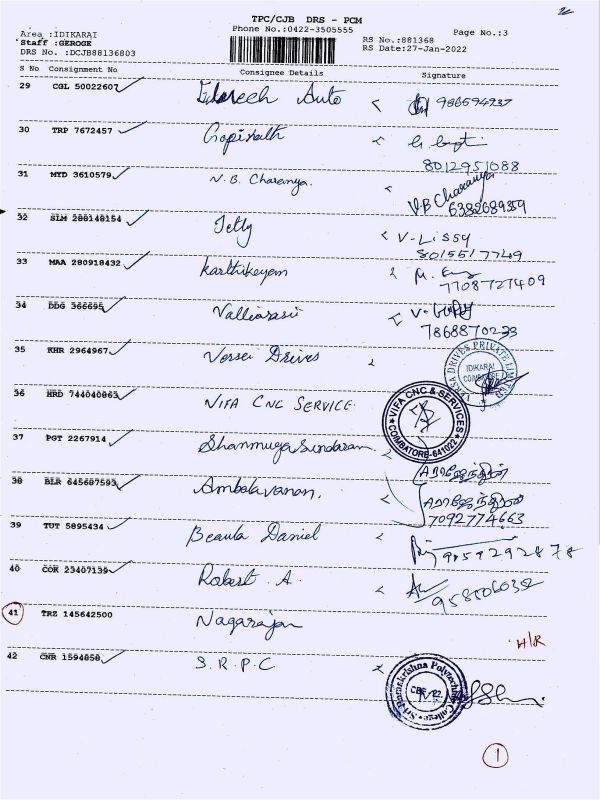 TPC/CJB DRS - PCM
Area :IDIKARAI Phone No.:0422-3505555 Page No.:3
Staff :GEROGE RS No.:881368
DRS No. :DCJB88136803 RS Date:27-Jan-2022
S No Consignment No Consignee Details Signature
29 CGL 50022607 Auto
30 TRP 7672457 Gopinath
8012951088
31 MYD 3610579 N.B. Charanya. V.B Charanya
6382689359
32 SLM 280148154 Jetty V-Lissy
8015517749
33 MAA 280918432 Karthikeyan M.
7708727409
34 DDG 366695 Valliarasu
7868870233
35 KHR 2964967 Versei Drives VARSA DRIVES PRIVATE LIMITED IDIKARAI COIMBATORE
36 HRD 744040863 VIFA CNC SERVICE. VIFA CNC & SERVICES COIMBATORE-641022
37 PGT 2267914 Shanmuga Sundaram
38 BLR 645687593 Ambalavanan.
7092774663
39 TUT 5895434 Beaula Daniel
40 COK 23407139 Robert A.
41 TRZ 145642500 Nagarajan H/R
42 CNR 1594858 S.R.P.C Sri Ramakrishna Polytechnic College
1